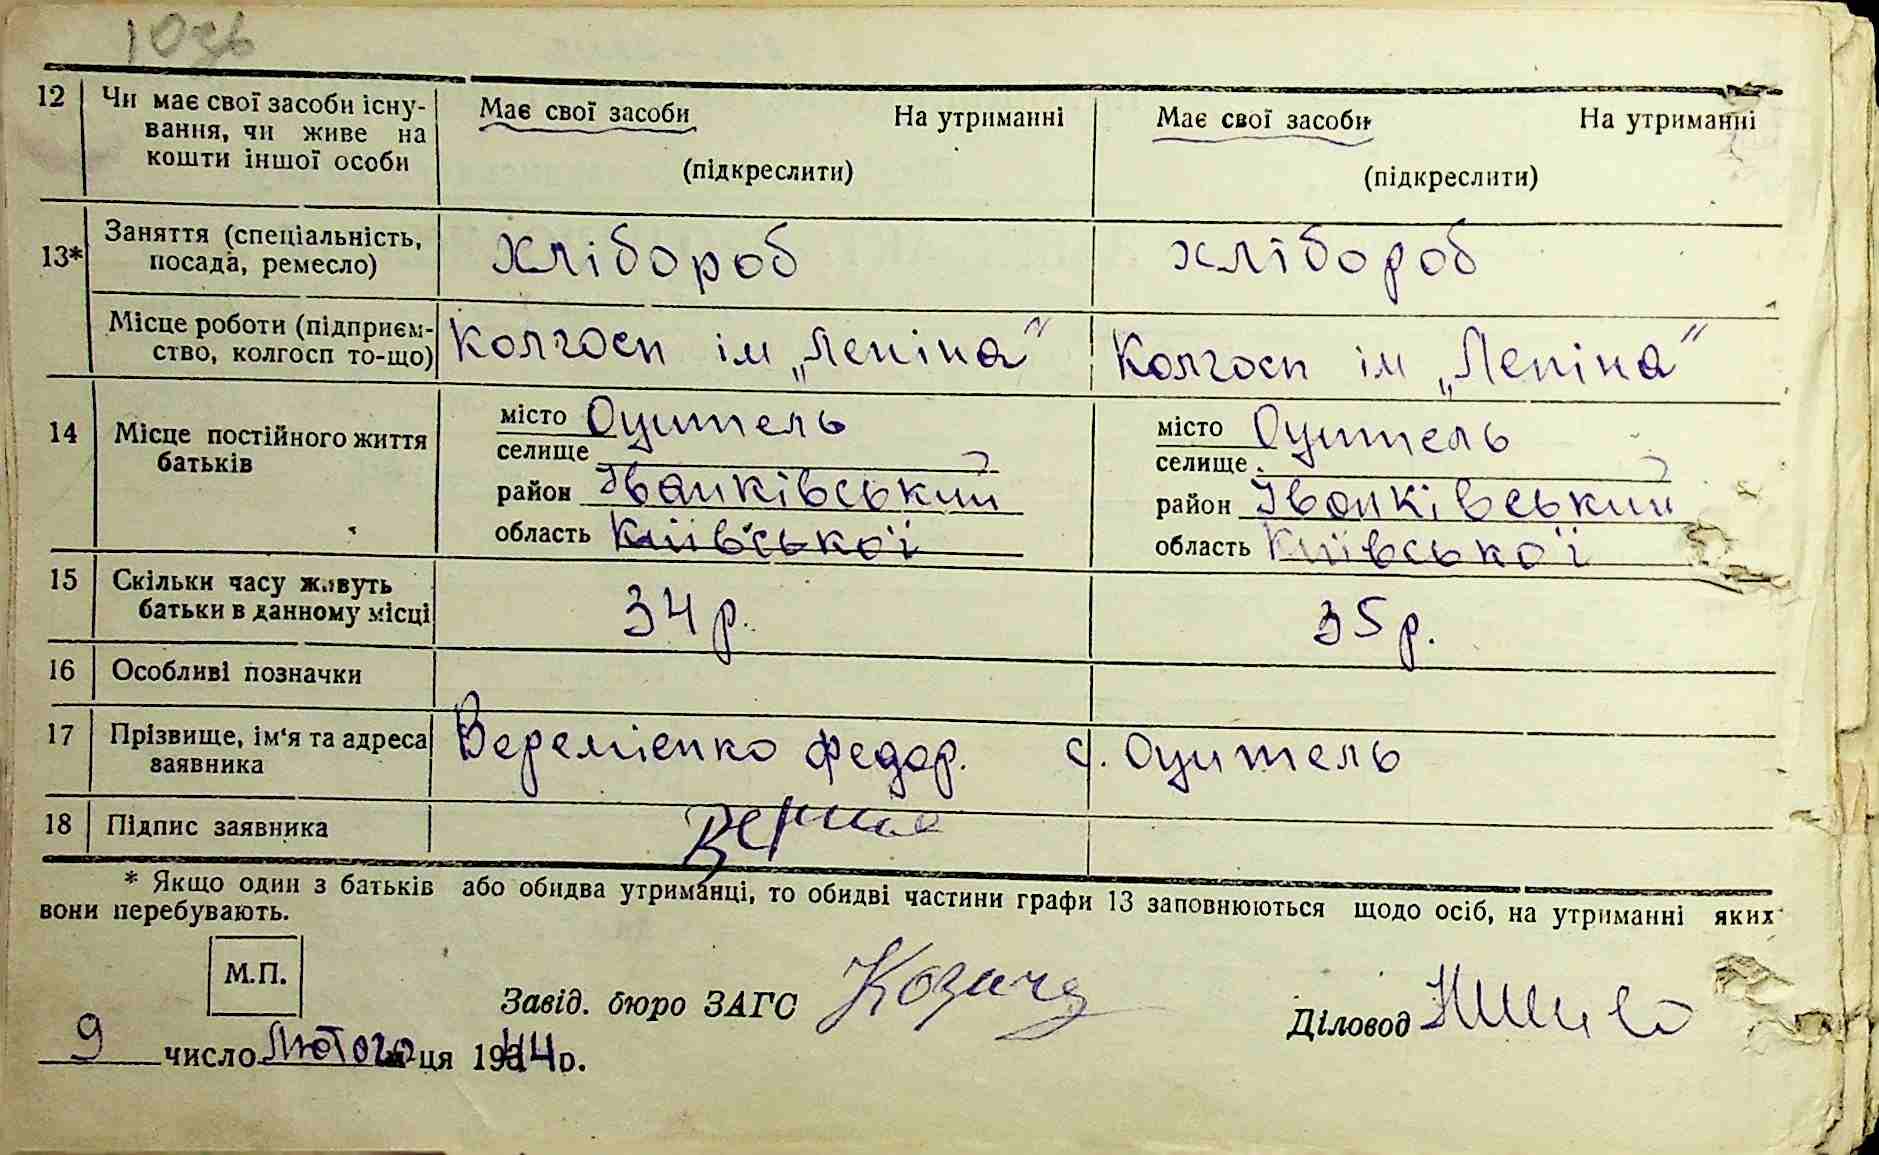 12 Чи має свої засоби існу- Має свої засоби На утриманні Має свої засоби На утриманні
вання, чи живе на
кошти іншої особи (підкреслити) (підкреслити)
13* Заняття (спеціальність, хлібороб хлібороб
посада, ремесло)
Місце роботи (підприєм- Колгосп ім „Леніна" Колгосп ім „Леніна"
ство, колгосп то-що)
14 Місце постійного життя місто Оцитель місто Оцитель
батьків селище селище
район Іванківський район Іванківський
область Київської область Київської
15 Скільки часу живуть 34 р. 35 р.
батьки в данному місці
16 Особливі позначки
17 Прізвище, ім'я та адреса Веремієнко Федор. с. Оцитель
заявника
18 Підпис заявника
* Якщо один з батьків або обидва утриманці, то обидві частини графи 13 заповнюються щодо осіб, на утриманні яких
вони перебувають.
М.П.
Завід. бюро ЗАГС Діловод
9 число Лютого ця 1944 р.